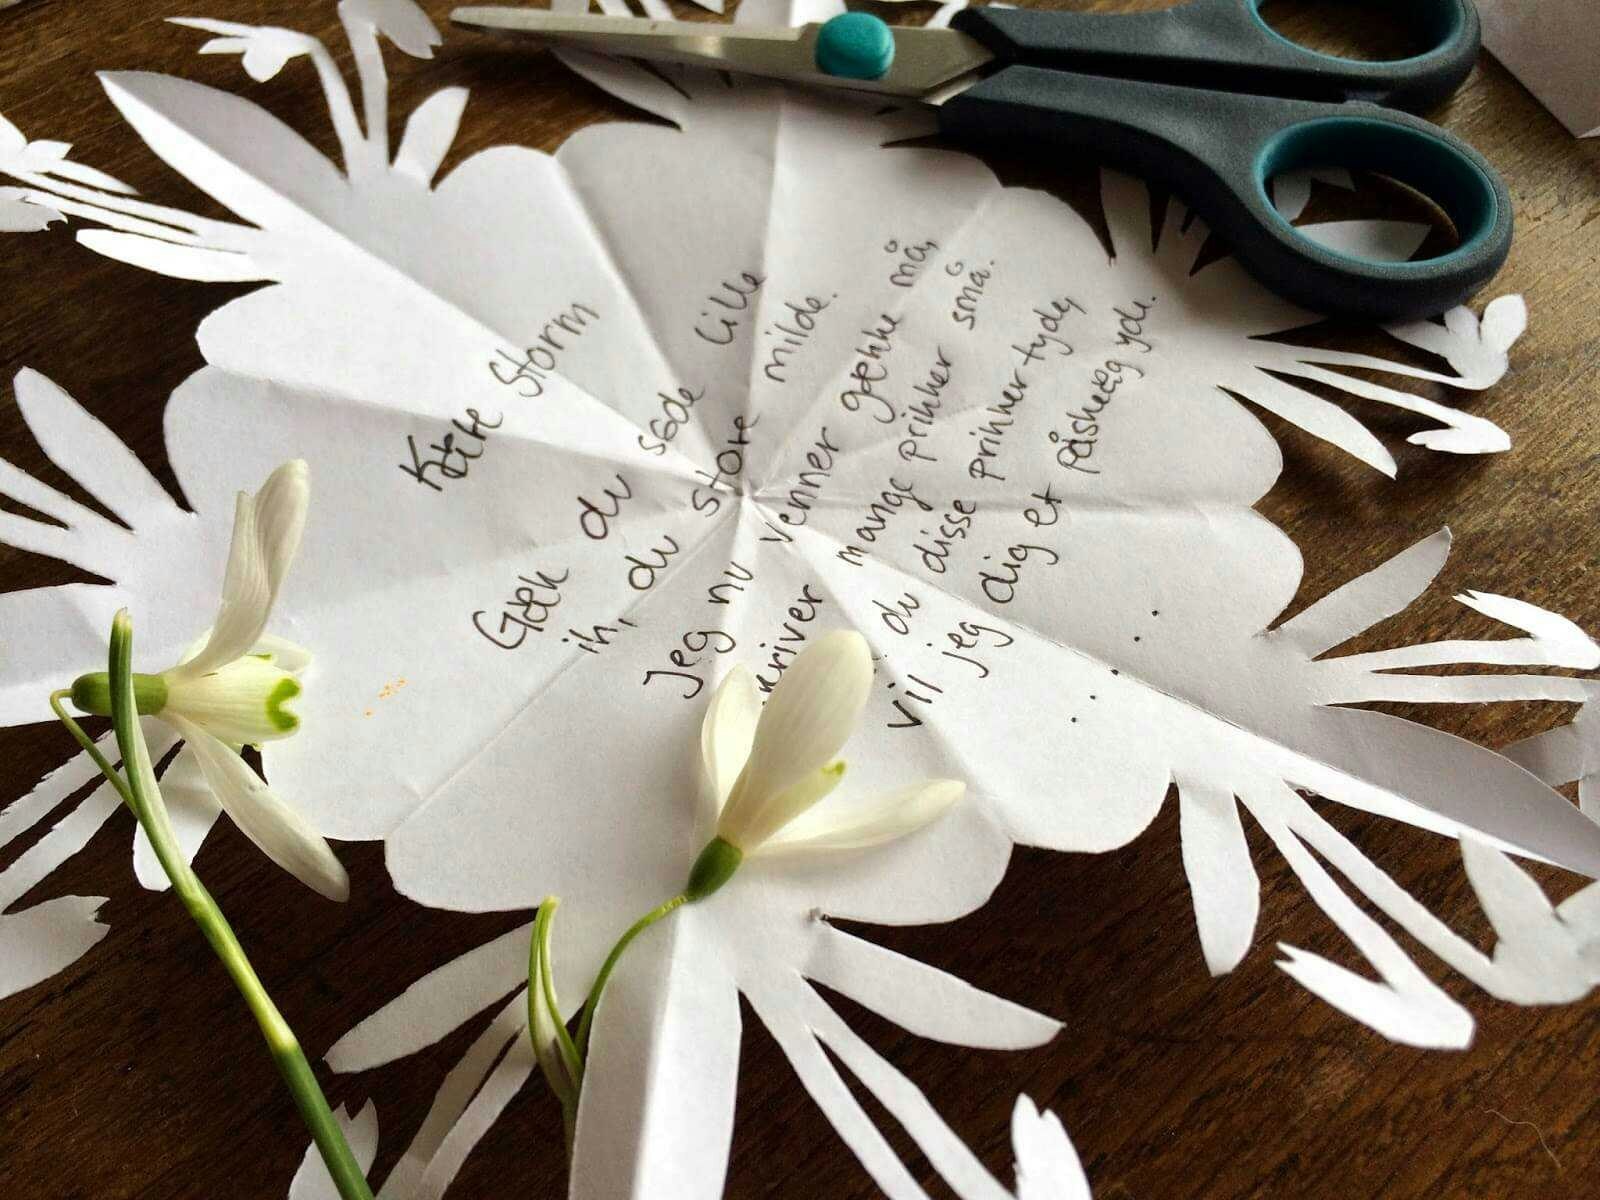 Kære Storm
Gæk du søde lille
ih, du store milde.
Jeg nu venner gække må,
kriver mange prikker små.
du disse prikker tyde,
vil jeg dig et påskeæg yde.
.....